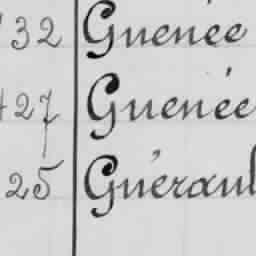 32 Guenée
427 Guenée
25 Guéraul